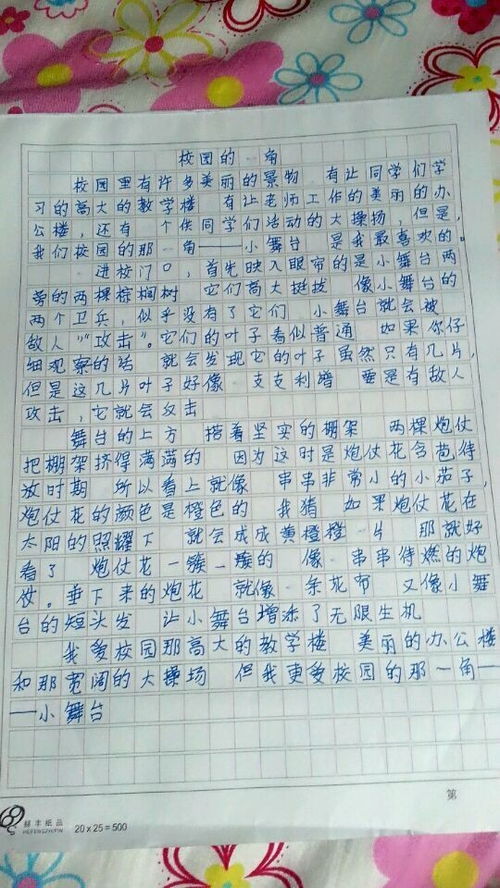 校园的一角
校园里有许多美丽的景物 有让同学们学
习的高大的教学楼 有让老师工作的美丽的办
公楼，还有 个供同学们活动的大操扬，但是，
我们校园的那一角——小舞台 是我最喜欢的。
进校门口，首先映入眼帘的是小舞台两
旁的两棵棕榈树 它们高大挺拔 像小舞台的
两个卫兵，似乎没有了它们 小舞台就会被
敌人“攻击”。它们的叶子看似普通 如果你仔
细观察的话 就会发现它的叶子虽然只有几片，
但是这几片叶子好像 支支利 要是有敌人
攻击，它就会反击
舞台的上方 搭着坚实的棚架 两棵炮仗
把棚架挤得满满的 因为这时是炮仗花含苞待
放时期 所以看上就像 串串非常小的小茄子，
炮仗花的颜色是橙色的 我猜 如果炮仗花在
太阳的照耀下 就会成成黄橙橙一片 那就好
看了 炮仗花一簇一簇的 像一串串待燃的炮
仗。垂下来的炮花 就像一条花布 又像小舞
台的短头发 让小舞台增添了无限生机
我爱校园那高大的教学楼 美丽的办公楼
和那宽阔的大操场 但我更爱校园的那一角—
—小舞台
第
赫丰纸品
HEFENGZHIPIN
20×25=500